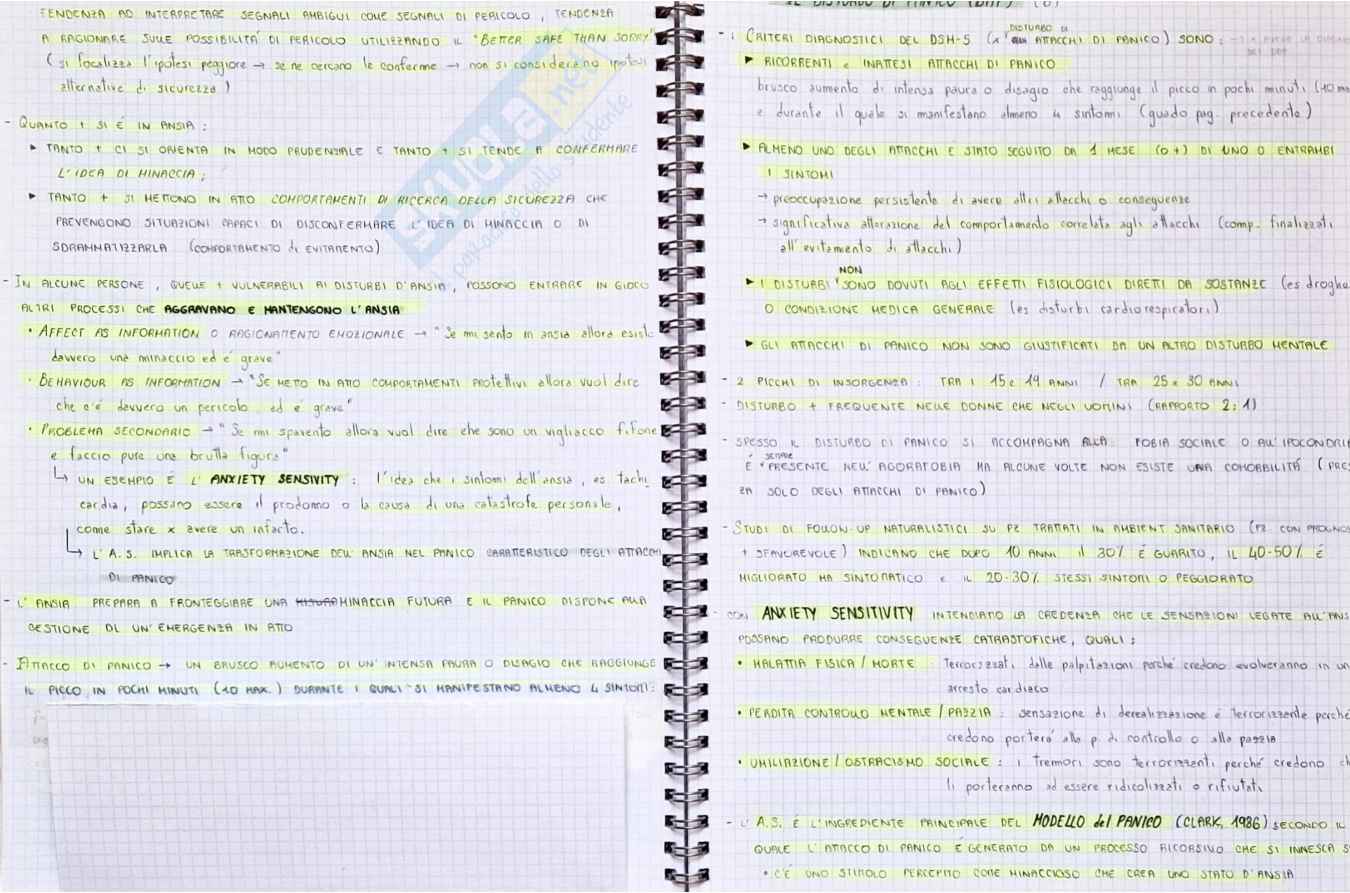 TENDENZA AD INTERPRETARE SEGNALI AMBIGUI COME SEGNALI DI PERICOLO, TENDENZA
A RAGIONARE SULLE POSSIBILITA' DI PERICOLO UTILIZZANDO IL "BETTER SAFE THAN SORRY"
(si focalizza l'ipotesi peggiore → se ne cercano le conferme → non si considerano ipotesi
alternative di sicurezza)
- QUANTO + SI È IN ANSIA:
► TANTO + CI SI ORIENTA IN MODO PRUDENZIALE E TANTO + SI TENDE A CONFERMARE
L'IDEA DI MINACCIA;
► TANTO + SI METTONO IN ATTO COMPORTAMENTI DI RICERCA DELLA SICUREZZA CHE
PREVENGONO SITUAZIONI CAPACI DI DISCONFERMARE L'IDEA DI MINACCIA O DI
SDRAMMATIZZARLA (COMPORTAMENTO di EVITAMENTO)
- IN ALCUNE PERSONE, QUELLE + VULNERABILI AI DISTURBI D'ANSIA, POSSONO ENTRARE IN GIOCO
ALTRI PROCESSI CHE AGGRAVANO E MANTENGONO L'ANSIA
• AFFECT AS INFORMATION O RAGIONAMENTO EMOZIONALE → "Se mi sento in ansia allora esiste
davvero una minaccia ed è grave"
• BEHAVIOUR AS INFORMATION → "SE METTO IN ATTO COMPORTAMENTI PROTETTIVI allora vuol dire
che c'è davvero un pericolo ed è grave"
• PROBLEMA SECONDARIO → "Se mi spavento allora vuol dire che sono un vigliacco fifone
e faccio pure una brutta figura"
↳ UN ESEMPIO È L'ANXIETY SENSIVITY: l'idea che i sintomi dell'ansia, es tachi
cardia, possano essere il prodomo o la causa di una catastrofe personale,
come stare x avere un infarto.
↳ L'A.S. IMPLICA LA TRASFORMAZIONE DELL'ANSIA NEL PANICO CARATTERISTICO DEGLI ATTACCHI
DI PANICO
- L'ANSIA PREPARA A FRONTEGGIARE UNA MINACCIA FUTURA E IL PANICO DISPONE ALLA
GESTIONE DI UN'EMERGENZA IN ATTO
- ATTACCO DI PANICO → UN BRUSCO AUMENTO DI UN'INTENSA PAURA O DISAGIO CHE RAGGIUNGE
IL PICCO IN POCHI MINUTI (10 MAX.) DURANTE I QUALI SI MANIFESTANO ALMENO 4 SINTOMI:
IL DISTURBO DI PANICO (DAP)
- I CRITERI DIAGNOSTICI DEL DSM-5 (x DISTURBO DI ATTACCHI DI PANICO) SONO:
► RICORRENTI e INATTESI ATTACCHI DI PANICO
brusco aumento di intensa paura o disagio che raggiunge il picco in pochi minuti (10 m
e durante il quale si manifestano almeno 4 sintomi (guado pag. precedente)
► ALMENO UNO DEGLI ATTACCHI È STATO SEGUITO DA 1 MESE (O +) DI UNO O ENTRAMBI
I SINTOMI
→ preoccupazione persistente di avere altri attacchi o conseguenze
→ significativa alterazione del comportamento correlata agli attacchi (comp. finalizzati
all'evitamento di attacchi)
► I DISTURBI NON SONO DOVUTI AGLI EFFETTI FISIOLOGICI DIRETTI DA SOSTANZE (es droghe
O CONDIZIONE MEDICA GENERALE (es disturbi cardiorespiratori)
► GLI ATTACCHI DI PANICO NON SONO GIUSTIFICATI DA UN ALTRO DISTURBO MENTALE
- 2 PICCHI DI INSORGENZA: TRA I 15 e 19 ANNI / TRA 25 e 30 ANNI
- DISTURBO + FREQUENTE NELLE DONNE CHE NEGLI UOMINI (RAPPORTO 2:1)
- SPESSO IL DISTURBO DI PANICO SI ACCOMPAGNA ALLA FOBIA SOCIALE O ALL'IPOCONDRI
È SEMPRE PRESENTE NELL'AGORAFOBIA MA ALCUNE VOLTE NON ESISTE UNA COMORBILITÁ (PRES
ZA SOLO DEGLI ATTACCHI DI PANICO)
- STUDI DI FOLLOW-UP NATURALISTICI SU PZ TRATTATI IN AMBIENT SANITARIO (PZ CON PROGNOS
+ SFAVOREVOLE) INDICANO CHE DOPO 10 ANNI il 30% È GUARITO, IL 40-50% È
MIGLIORATO MA SINTOMATICO E IL 20-30% STESSI SINTOMI O PEGGIORATO
- CON ANXIETY SENSITIVITY INTENDIAMO LA CREDENZA CHE LE SENSAZIONI LEGATE ALL'ANS
POSSANO PRODURRE CONSEGUENZE CATASTOFICHE, QUALI:
• MALATTIA FISICA / MORTE: Terrorizzati dalle palpitazioni perché credono evolveranno in un
arresto cardiaco
• PERDITA CONTROLLO MENTALE / PAZZIA: sensazione di derealizzazione è terrorizzante perché
credono porterà alla p. di controllo o alla pazzia
• UMILIAZIONE / OSTRACISMO SOCIALE: i tremori sono terrorizzanti perché credono ch
li porteranno ad essere ridicolizzati o rifiutati
- L'A.S. È L'INGREDIENTE PRINCIPALE DEL MODELLO del PANICO (CLARK, 1986) SECONDO IL
QUALE L'ATTACCO DI PANICO È GENERATO DA UN PROCESSO RICORSIVO CHE SI INNESCA S
• C'È UNO STIMOLO PERCEPITO COME MINACCIOSO CHE CREA UNO STATO D'ANSIA
SKUOLA.net
il paradiso dello studente